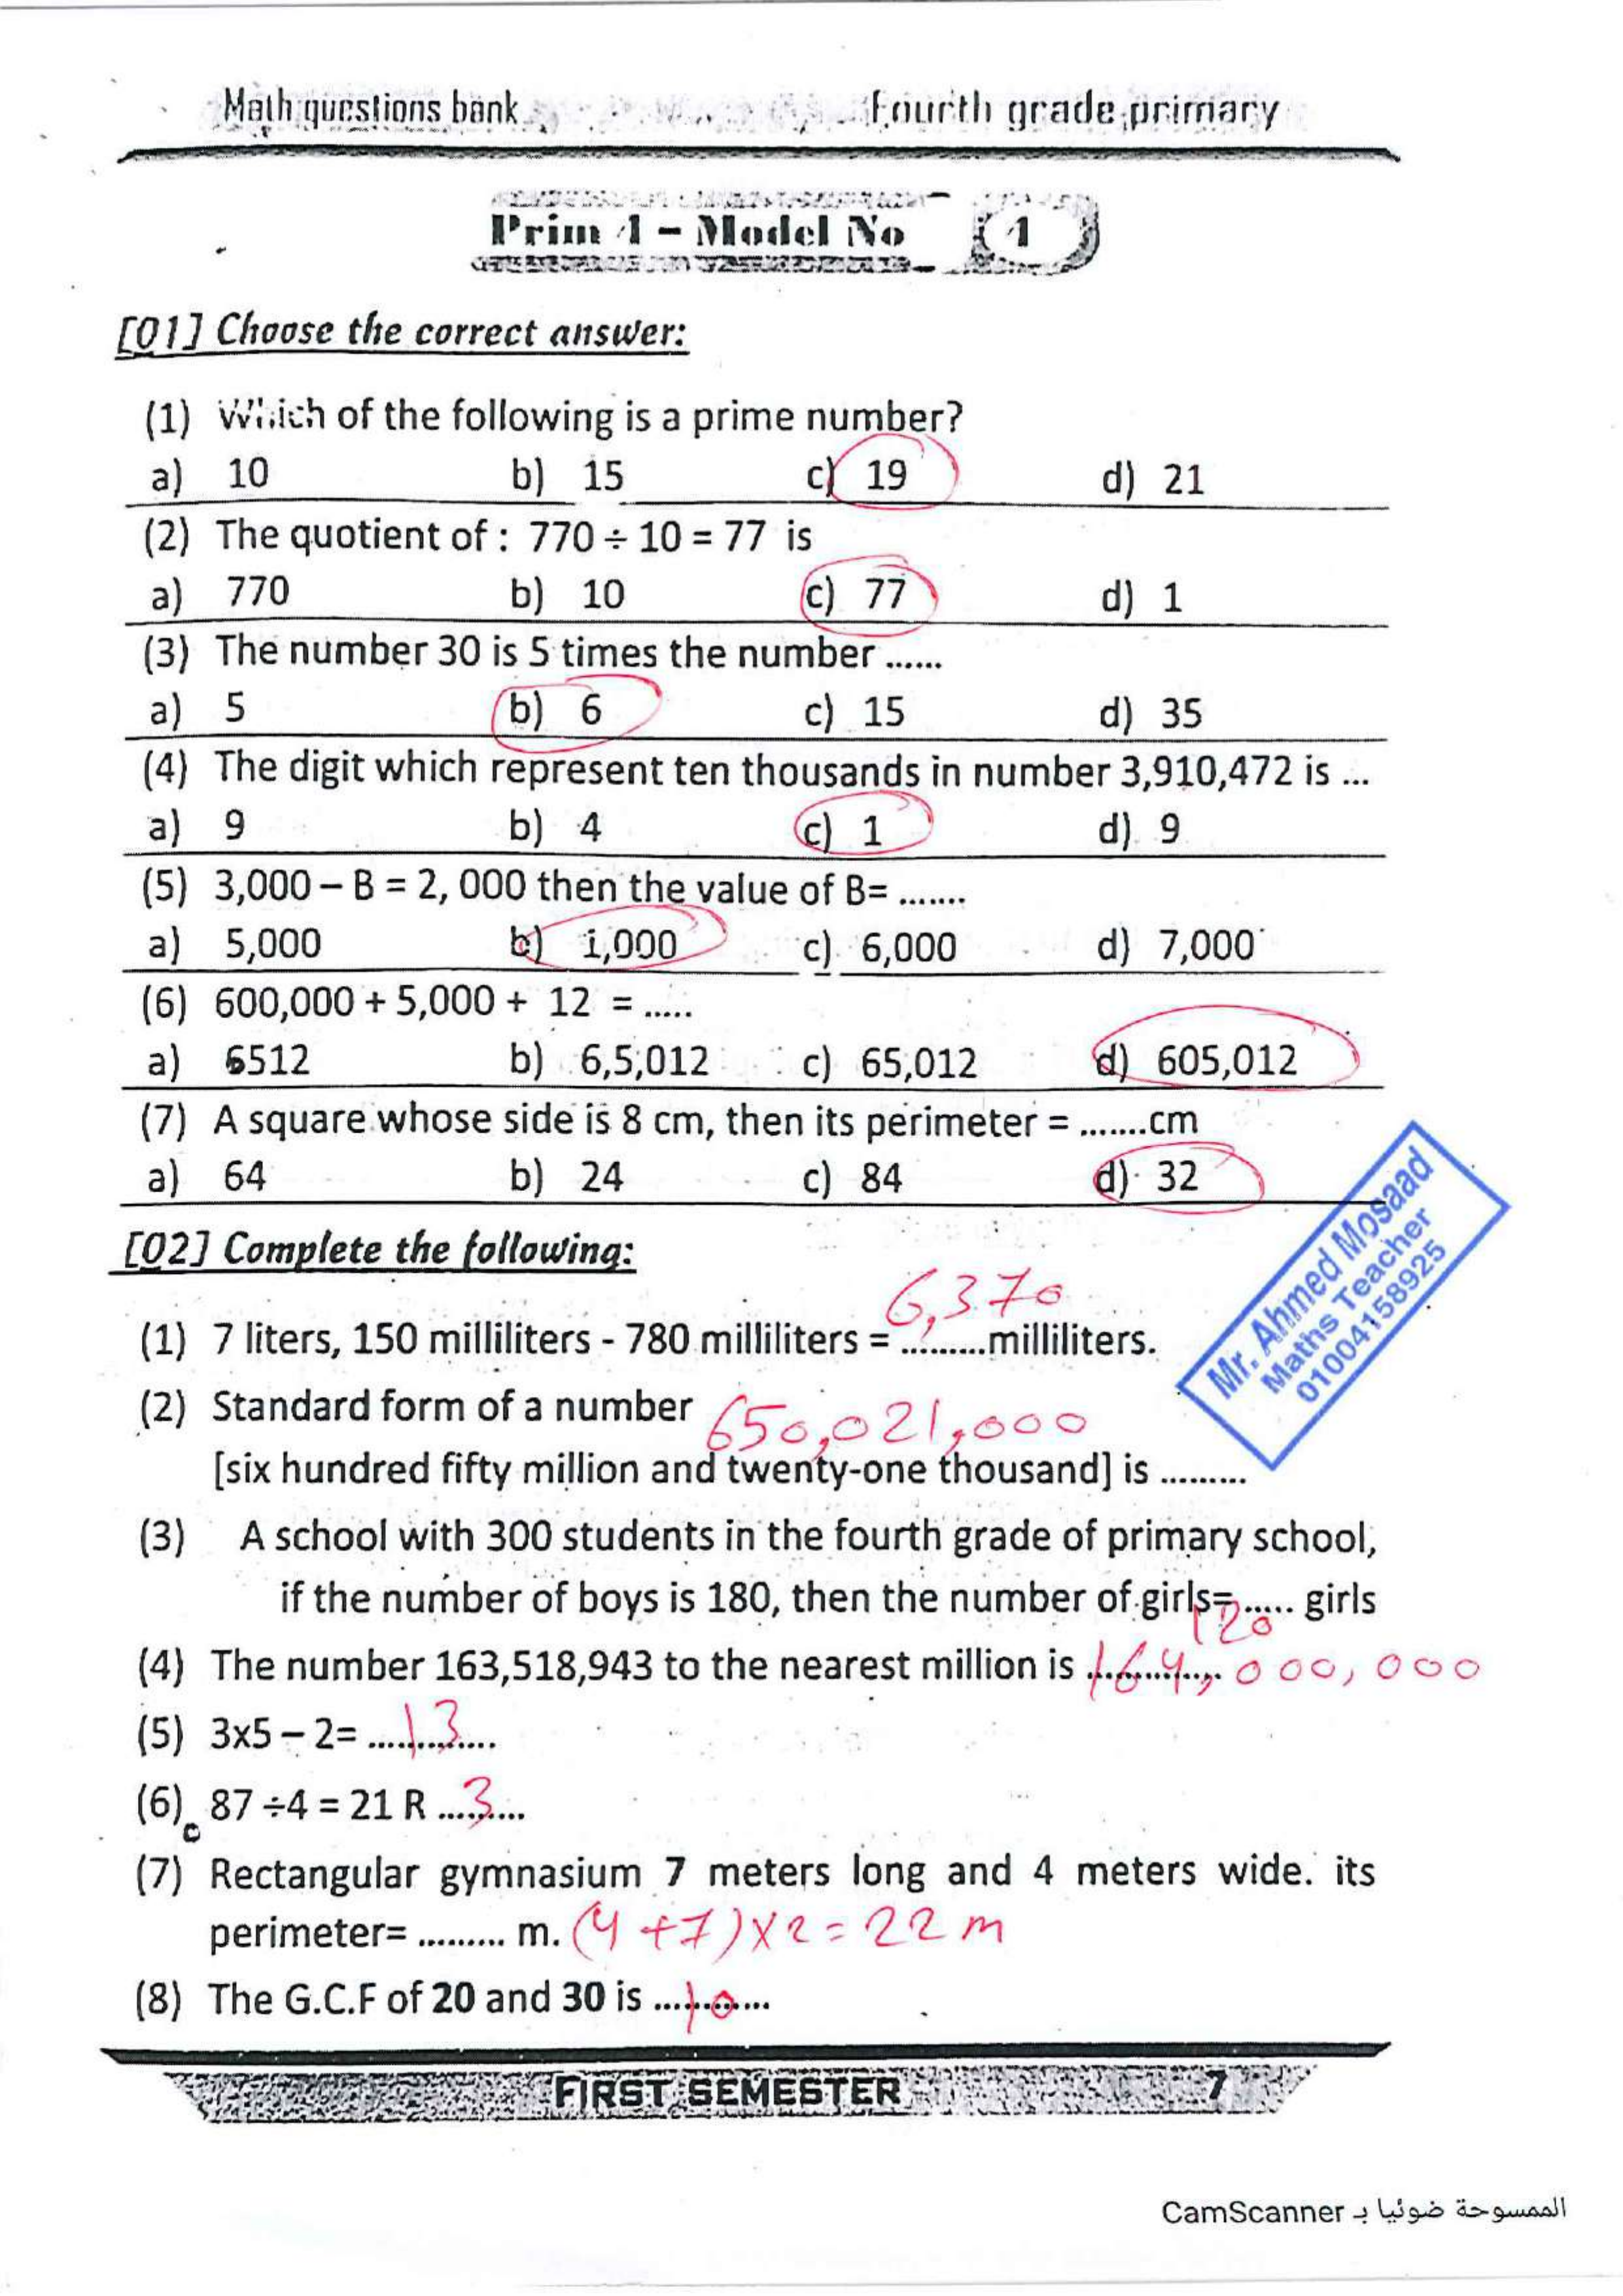 Math questions bank Fourth grade primary
Prim 4 – Model No 1
[Q1] Choose the correct answer:
(1) Which of the following is a prime number?
a) 10 b) 15 c) 19 d) 21
(2) The quotient of : 770 ÷ 10 = 77 is
a) 770 b) 10 c) 77 d) 1
(3) The number 30 is 5 times the number ......
a) 5 b) 6 c) 15 d) 35
(4) The digit which represent ten thousands in number 3,910,472 is ...
a) 9 b) 4 c) 1 d) 9
(5) 3,000 – B = 2, 000 then the value of B= .......
a) 5,000 b) 1,000 c) 6,000 d) 7,000
(6) 600,000 + 5,000 + 12 = .....
a) 6512 b) 6,5,012 c) 65,012 d) 605,012
(7) A square whose side is 8 cm, then its perimeter = .......cm
a) 64 b) 24 c) 84 d) 32
Mr. Ahmed Mosaad
Maths Teacher
01004158925
[Q2] Complete the following:
6,370
(1) 7 liters, 150 milliliters - 780 milliliters = .........milliliters.
(2) Standard form of a number 650,021,000
[six hundred fifty million and twenty-one thousand] is .........
(3) A school with 300 students in the fourth grade of primary school,
if the number of boys is 180, then the number of girls= ..... girls
120
(4) The number 163,518,943 to the nearest million is 164,000,000
(5) 3x5 – 2= ....13....
(6) 87 ÷4 = 21 R ...3...
(7) Rectangular gymnasium 7 meters long and 4 meters wide. its
perimeter= ......... m. (4+7)×2=22 m
(8) The G.C.F of 20 and 30 is ....10....
FIRST SEMESTER 7
الممسوحة ضوئيا بـ CamScanner